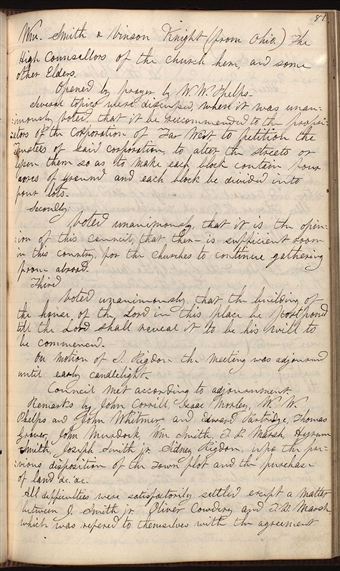 81
Wm. Smith & Vinson Knight (from Ohio.) The
High Counsellors of the church here, and some
other Elders.
Opened by prayer by W. W. Phelps.
Several topics were discussed, when it was unan-
imously voted that it be reccommended to the propri-
etors of the corporation of Far West to petition the
trustees of said corporation, to alter the streets or
upon them so as to make each block contain four
acres of ground and each block be divided into
four lots.
Secondly
Voted unanimously, that it is the opin-
ion of this Council, that there is sufficient room
in this country, for the churches to continue gathering
from abroad.
Third
Voted unanimously that the building of
the house of the Lord in this place be postpond
till the Lord shall reveal it to be his will to
be commenced.
On motion of S. Rigdon the meeting was adjourned
until early candlelight.
Council met according to adjournment.
Remarks by John Corrill, Isaac Morley, W. W.
Phelps and John Whitmer and Edward Partridge, Thomas
Grover, John Murdock, Wm Smith, T. B. Marsh, Hyrum
Smith, Joseph Smith jr. Sidney Rigdon, upo the pre-
vious disposition of the Town plot and the purchase
of land &c. &c.
All difficulties were satisfactorily settled except a matter
between J. Smith jr. Oliver Cowdery and T. B. Marsh
which was refered to themselves with the agreement